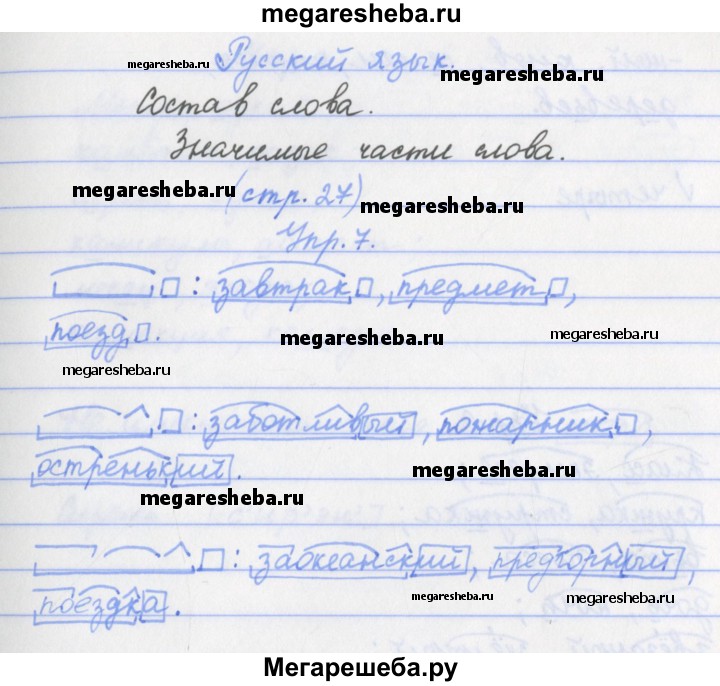 megaresheba.ru
Русский язык.
megaresheba.ru
megaresheba.ru
Состав слова.
Значимые части слова.
megaresheba.ru
(стр. 27)
megaresheba.ru
Упр. 7.
: завтрак, предмет,
поезд.
megaresheba.ru
megaresheba.ru
megaresheba.ru
: заботливый, пожарник,
остренький.
megaresheba.ru
megaresheba.ru
: заокеанский, предгорный,
поездка.
megaresheba.ru
megaresheba.ru
Мегарешеба.ру